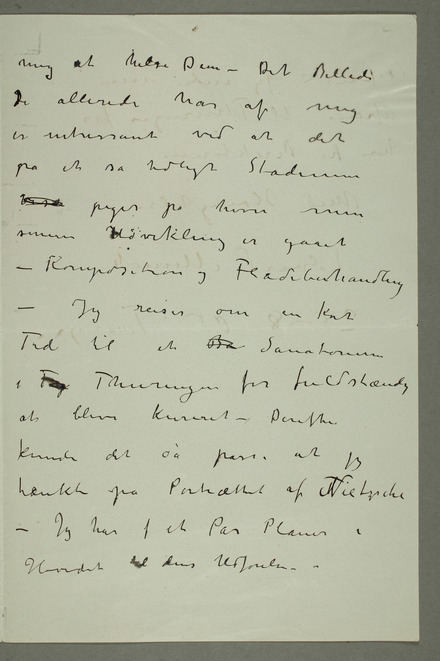 mig at hilse Dem – Det Billede
De allerede har af mig
er interessant ved at det
på et så tidligt Stadium
peger på hvor min
senere Udvikling er gaaet
– Komposition og Fladebehandling
– Jeg reiser om en kort
Tid til et Sanatorium
i Thüringen for fuldstændig
at blive kureret – Derefter
kunde det så passe at jeg
tænkte på Portrættet af Nietzsche
– Jeg har et Par Planer i
Hovedet til dens Udførelse –